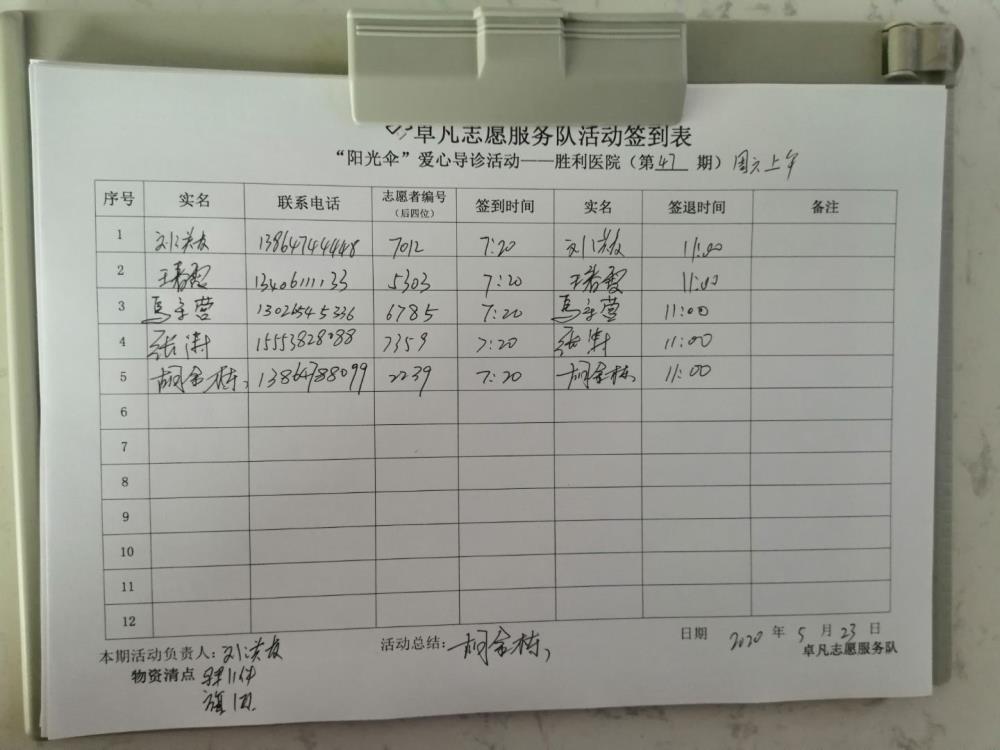 卓凡志愿服务队活动签到表
“阳光伞”爱心导诊活动——胜利医院（第47期）周六上午
序号 实名 联系电话 志愿者编号（后四位） 签到时间 实名 签退时间 备注
1 刘洪友 13864744448 7012 7:20 刘洪友 11:00
2 王春霞 13406111133 5303 7:20 王春霞 11:00
3 馬宝营 13026545336 6785 7:20 馬宝营 11:00
4 张涛 15553828088 7359 7:20 张涛 11:00
5 胡金栋 13864788099 2239 7:20 胡金栋 11:00
6
7
8
9
10
11
12
本期活动负责人：刘洪友 活动总结：胡金栋 日期 2020 年 5 月 23 日
物资清点 11件 卓凡志愿服务队
旗1面